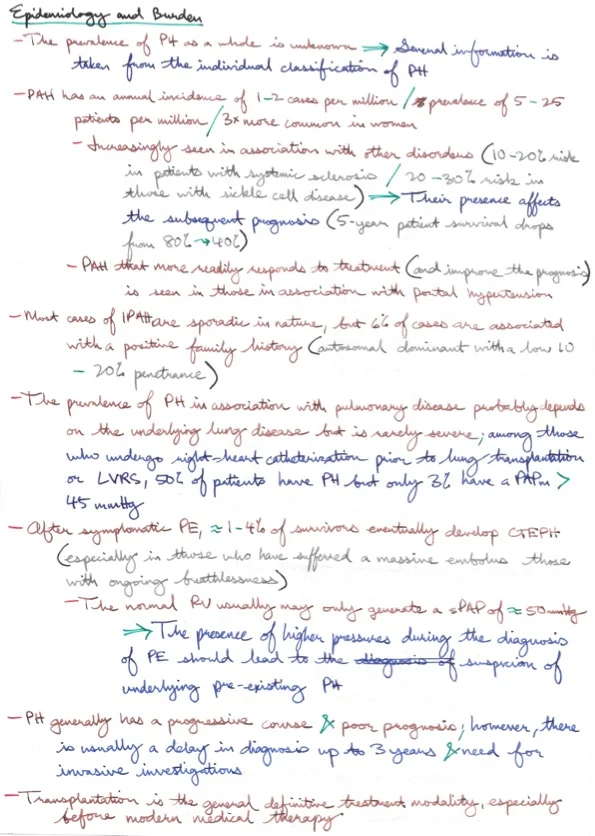 Epidemiology and Burden
- The prevalence of PH as a whole is unknown → Several information is
taken from the individual classification of PH
- PAH has an annual incidence of 1-2 cases per million / prevalence of 5-25
patients per million / 3x more common in women
- Increasingly seen in association with other disorders (10-20% risk
in patients with systemic sclerosis / 20-30% risk in
those with sickle cell disease) → Their presence affects
the subsequent prognosis (5-year patient survival drops
from 80% → 40%)
- PAH that more readily responds to treatment (and improve the prognosis)
is seen in those in association with portal hypertension
- Most cases of IPAH are sporadic in nature, but 6% of cases are associated
with a positive family history (autosomal dominant with a low 10
- 20% penetrance)
- The prevalence of PH in association with pulmonary disease probably depends
on the underlying lung disease but is rarely severe; among those
who undergo right-heart catheterization prior to lung transplantation
or LVRS, 50% of patients have PH but only 3% have a PAPm >
45 mmHg
- After symptomatic PE, ≈ 1-4% of survivors eventually develop CTEPH
(especially in those who have suffered a massive embolus those
with ongoing breathlessness)
- The normal RV usually may only generate a sPAP of ≈ 50 mmHg
⇒ The presence of higher pressures during the diagnosis
of PE should lead to the diagnosis of suspicion of
underlying pre-existing PH
- PH generally has a progressive course & poor prognosis; however, there
is usually a delay in diagnosis up to 3 years & need for
invasive investigations
- Transplantation is the general definitive treatment modality, especially
before modern medical therapy